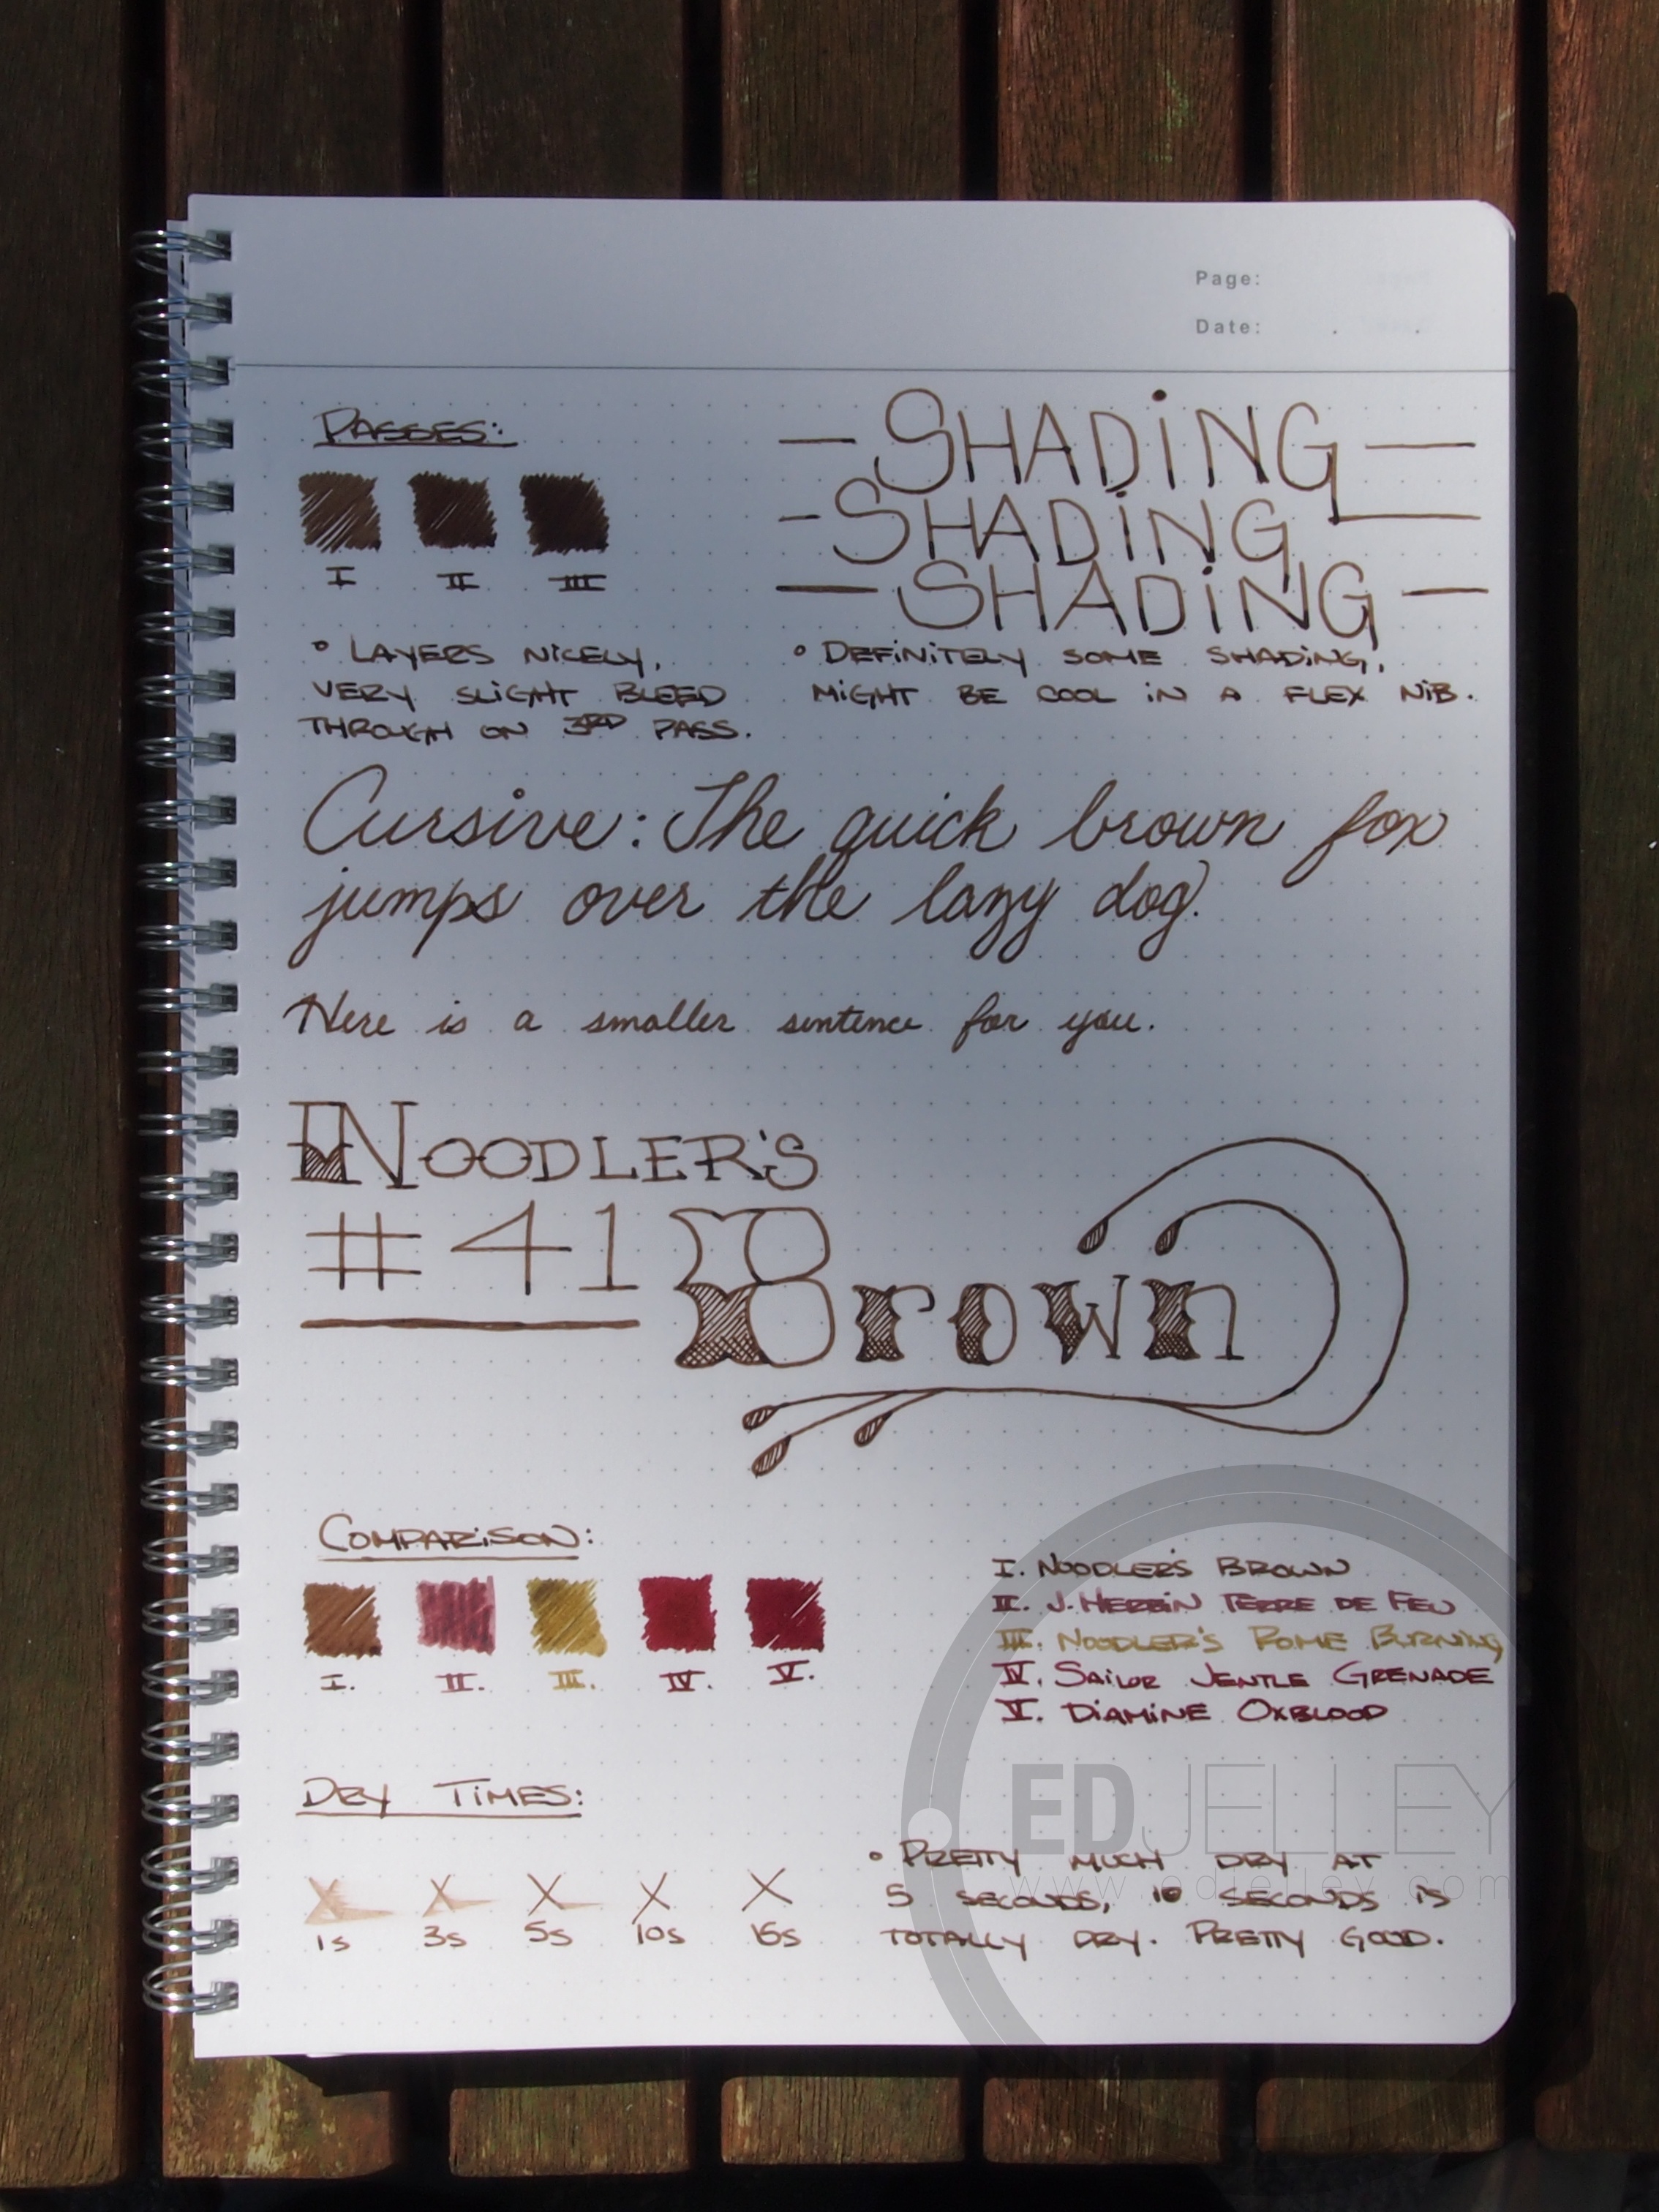 Page:
Date: . .
PASSES:
I II III
° LAYERS NiCELY,
VERY SLiGHT BLEED
THROUGH ON 3RD PASS.
—SHADiNG—
-SHADiNG—
—SHADiNG—
° DEFiNiTELY SOME SHADiNG,
MiGHT BE COOL iN A FLEX NiB.
Cursive: The quick brown fox
jumps over the lazy dog.
Here is a smaller sentence for you.
NOODLER'S
#41 Brown
COMPARiSON:
I. II. III. IV. V.
I. NOODLER'S BROWN
II. J. HERBiN TERRE DE FEU
III. NOODLER'S ROME BURNiNG
IV. SAiLOR JENTLE GRENADE
V. DiAMiNE OXBLOOD
DRY TiMES:
X X X X X
1s 3s 5s 10s 15s
° PRETTY MUCH DRY AT
5 SECONDS, 10 SECONDS iS
TOTALLY DRY. PRETTY GOOD.
EDJELLEY
www.edjelley.com